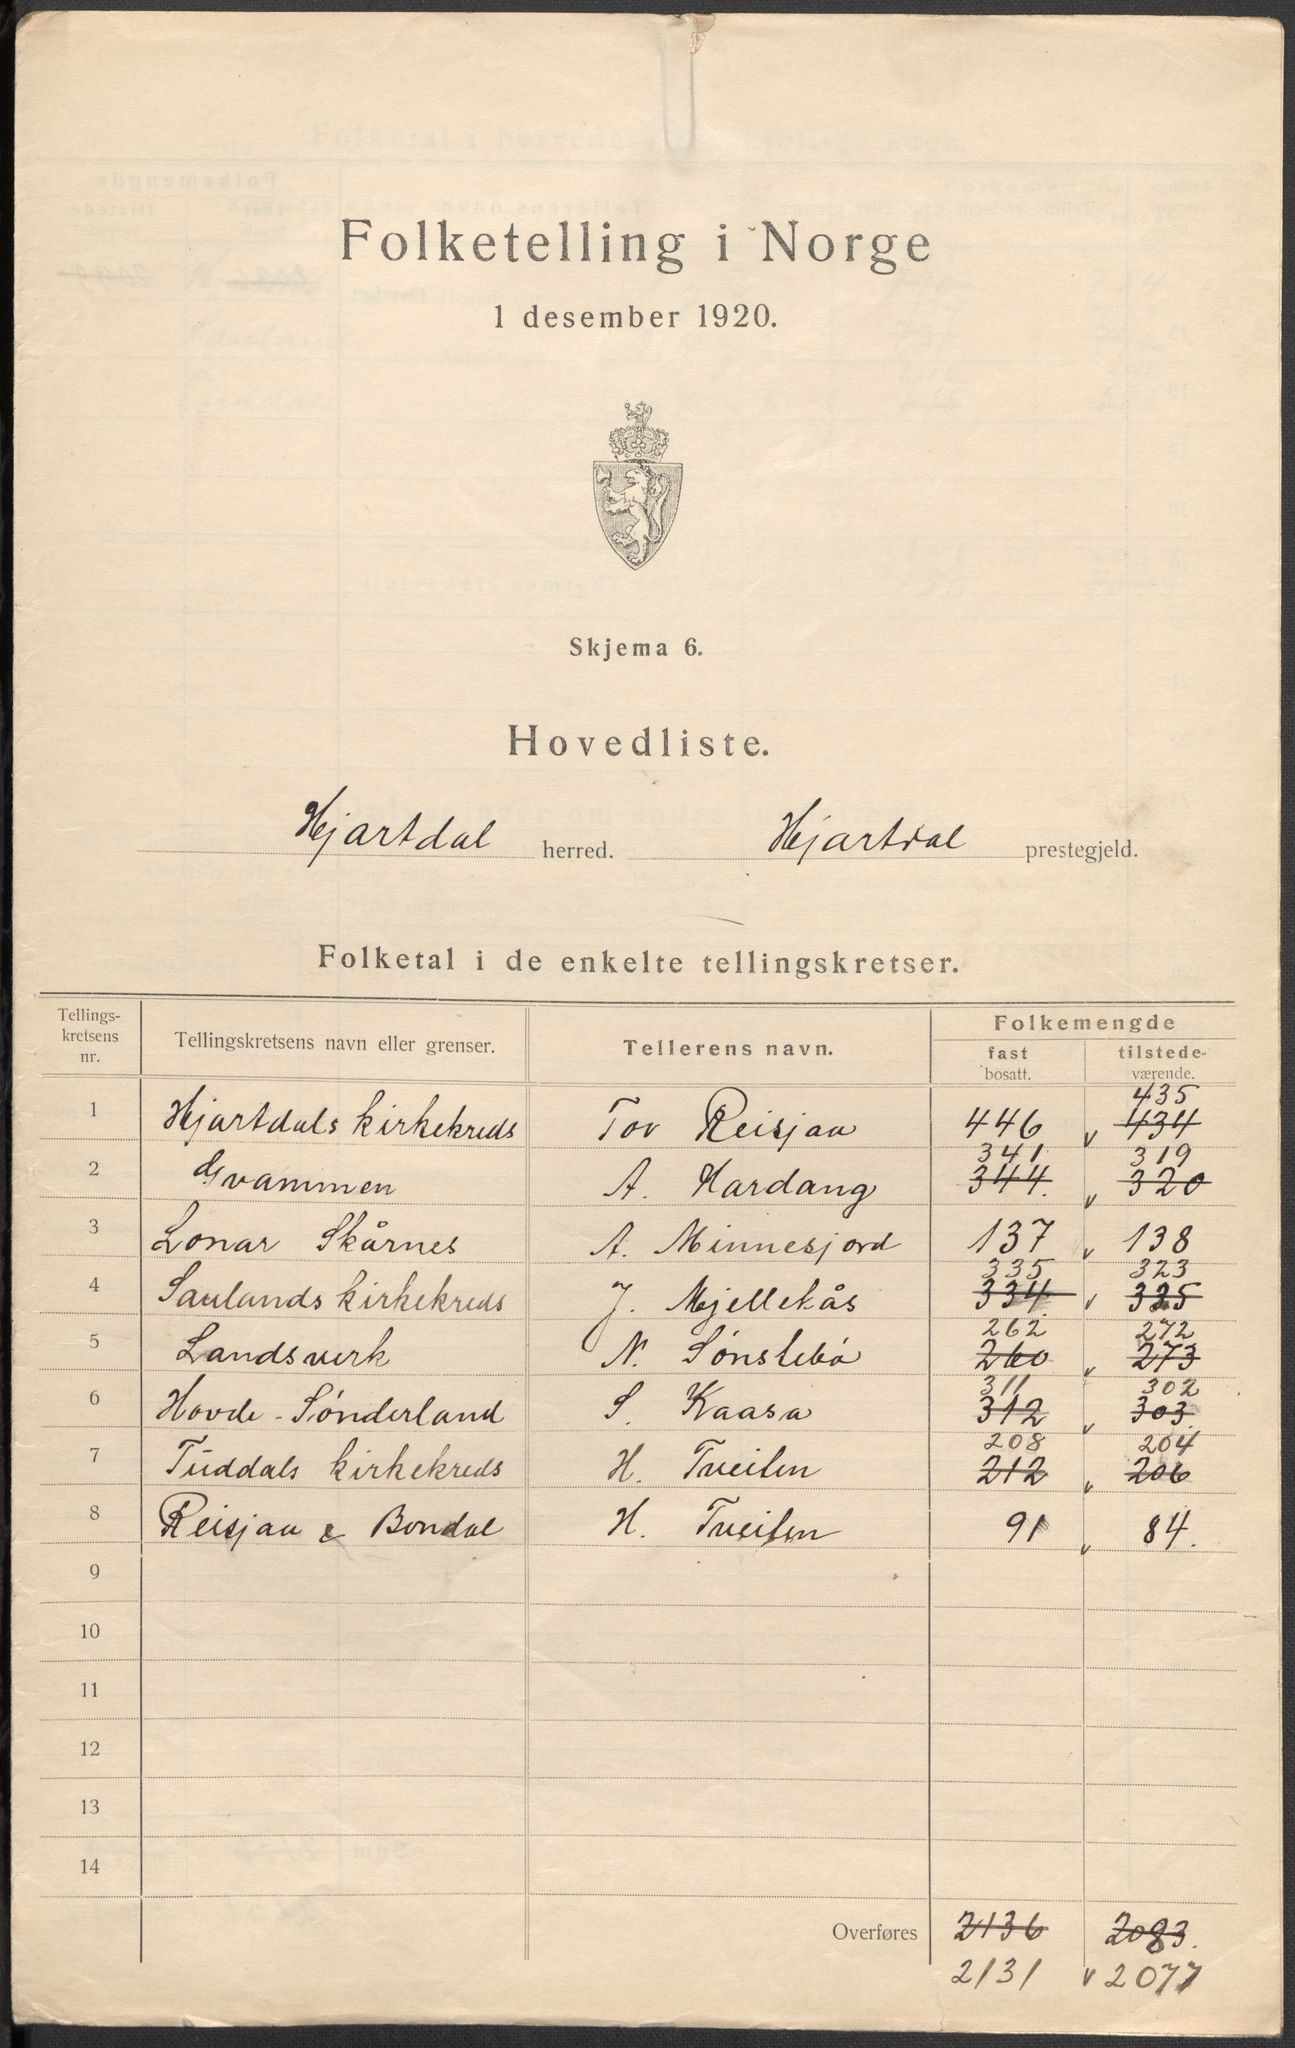 Folketelling i Norge
1 desember 1920.
Skjema 6.
Hovedliste.
Hjartdal herred. Hjartdal prestegjeld.
Folketal i de enkelte tellingskretser.
Tellings-kretsens nr. Tellingskretsens navn eller grenser. Tellerens navn. Folkemengde
fast bosatt. tilstede-værende.
435
1 Hjartdals kirkekreds Tov Reisjau 446 v 434
341 319
2 Gvammen A. Hardang 344. v 320
3 Lonar Skårnes A. Minnesjord 137 v 138
335 323
4 Saulands kirkekreds J. Mjellekås 334 v 325
262 272
5 Landsverk N. Sønslebø 260 v 273
311 302
6 Hovde - Sønderland S. Kaasa 312 v 303.
208 204
7 Tuddals kirkekreds H. Tveiten 212 v 206
8 Reisjau & Bondal H. Tveiten 91 v 84.
9
10
11
12
13
14
Overføres 2136 2083.
2131 v 2077